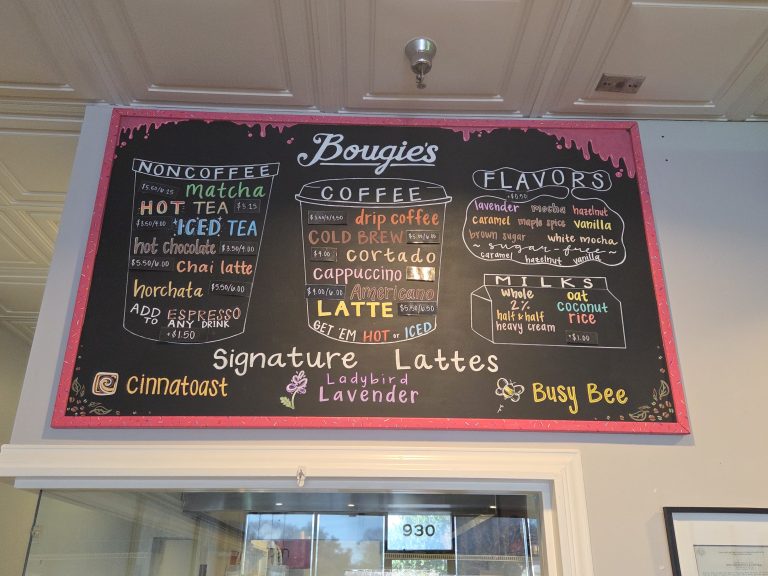 Bougie's
NONCOFFEE
matcha
HOT TEA $5.15
$3.50/4.00 ICED TEA
hot chocolate $3.50/4.00
$5.50/6.00 chai latte
horchata $5.50/6.00
ADD ESPRESSO
TO ANY DRINK
+$1.50
COFFEE
drip coffee
COLD BREW
$4.00 cortado
cappuccino
$4.00/6.00 Americano
LATTE
GET 'EM HOT or ICED
FLAVORS
+$0.50
lavender mocha hazelnut
caramel maple spice vanilla
brown sugar white mocha
~ sugar-free ~
caramel hazelnut vanilla
MILKS
whole oat
2% coconut
half & half rice
heavy cream +$1.00
Signature Lattes
Cinnatoast
Ladybird
Lavender
Busy Bee
930